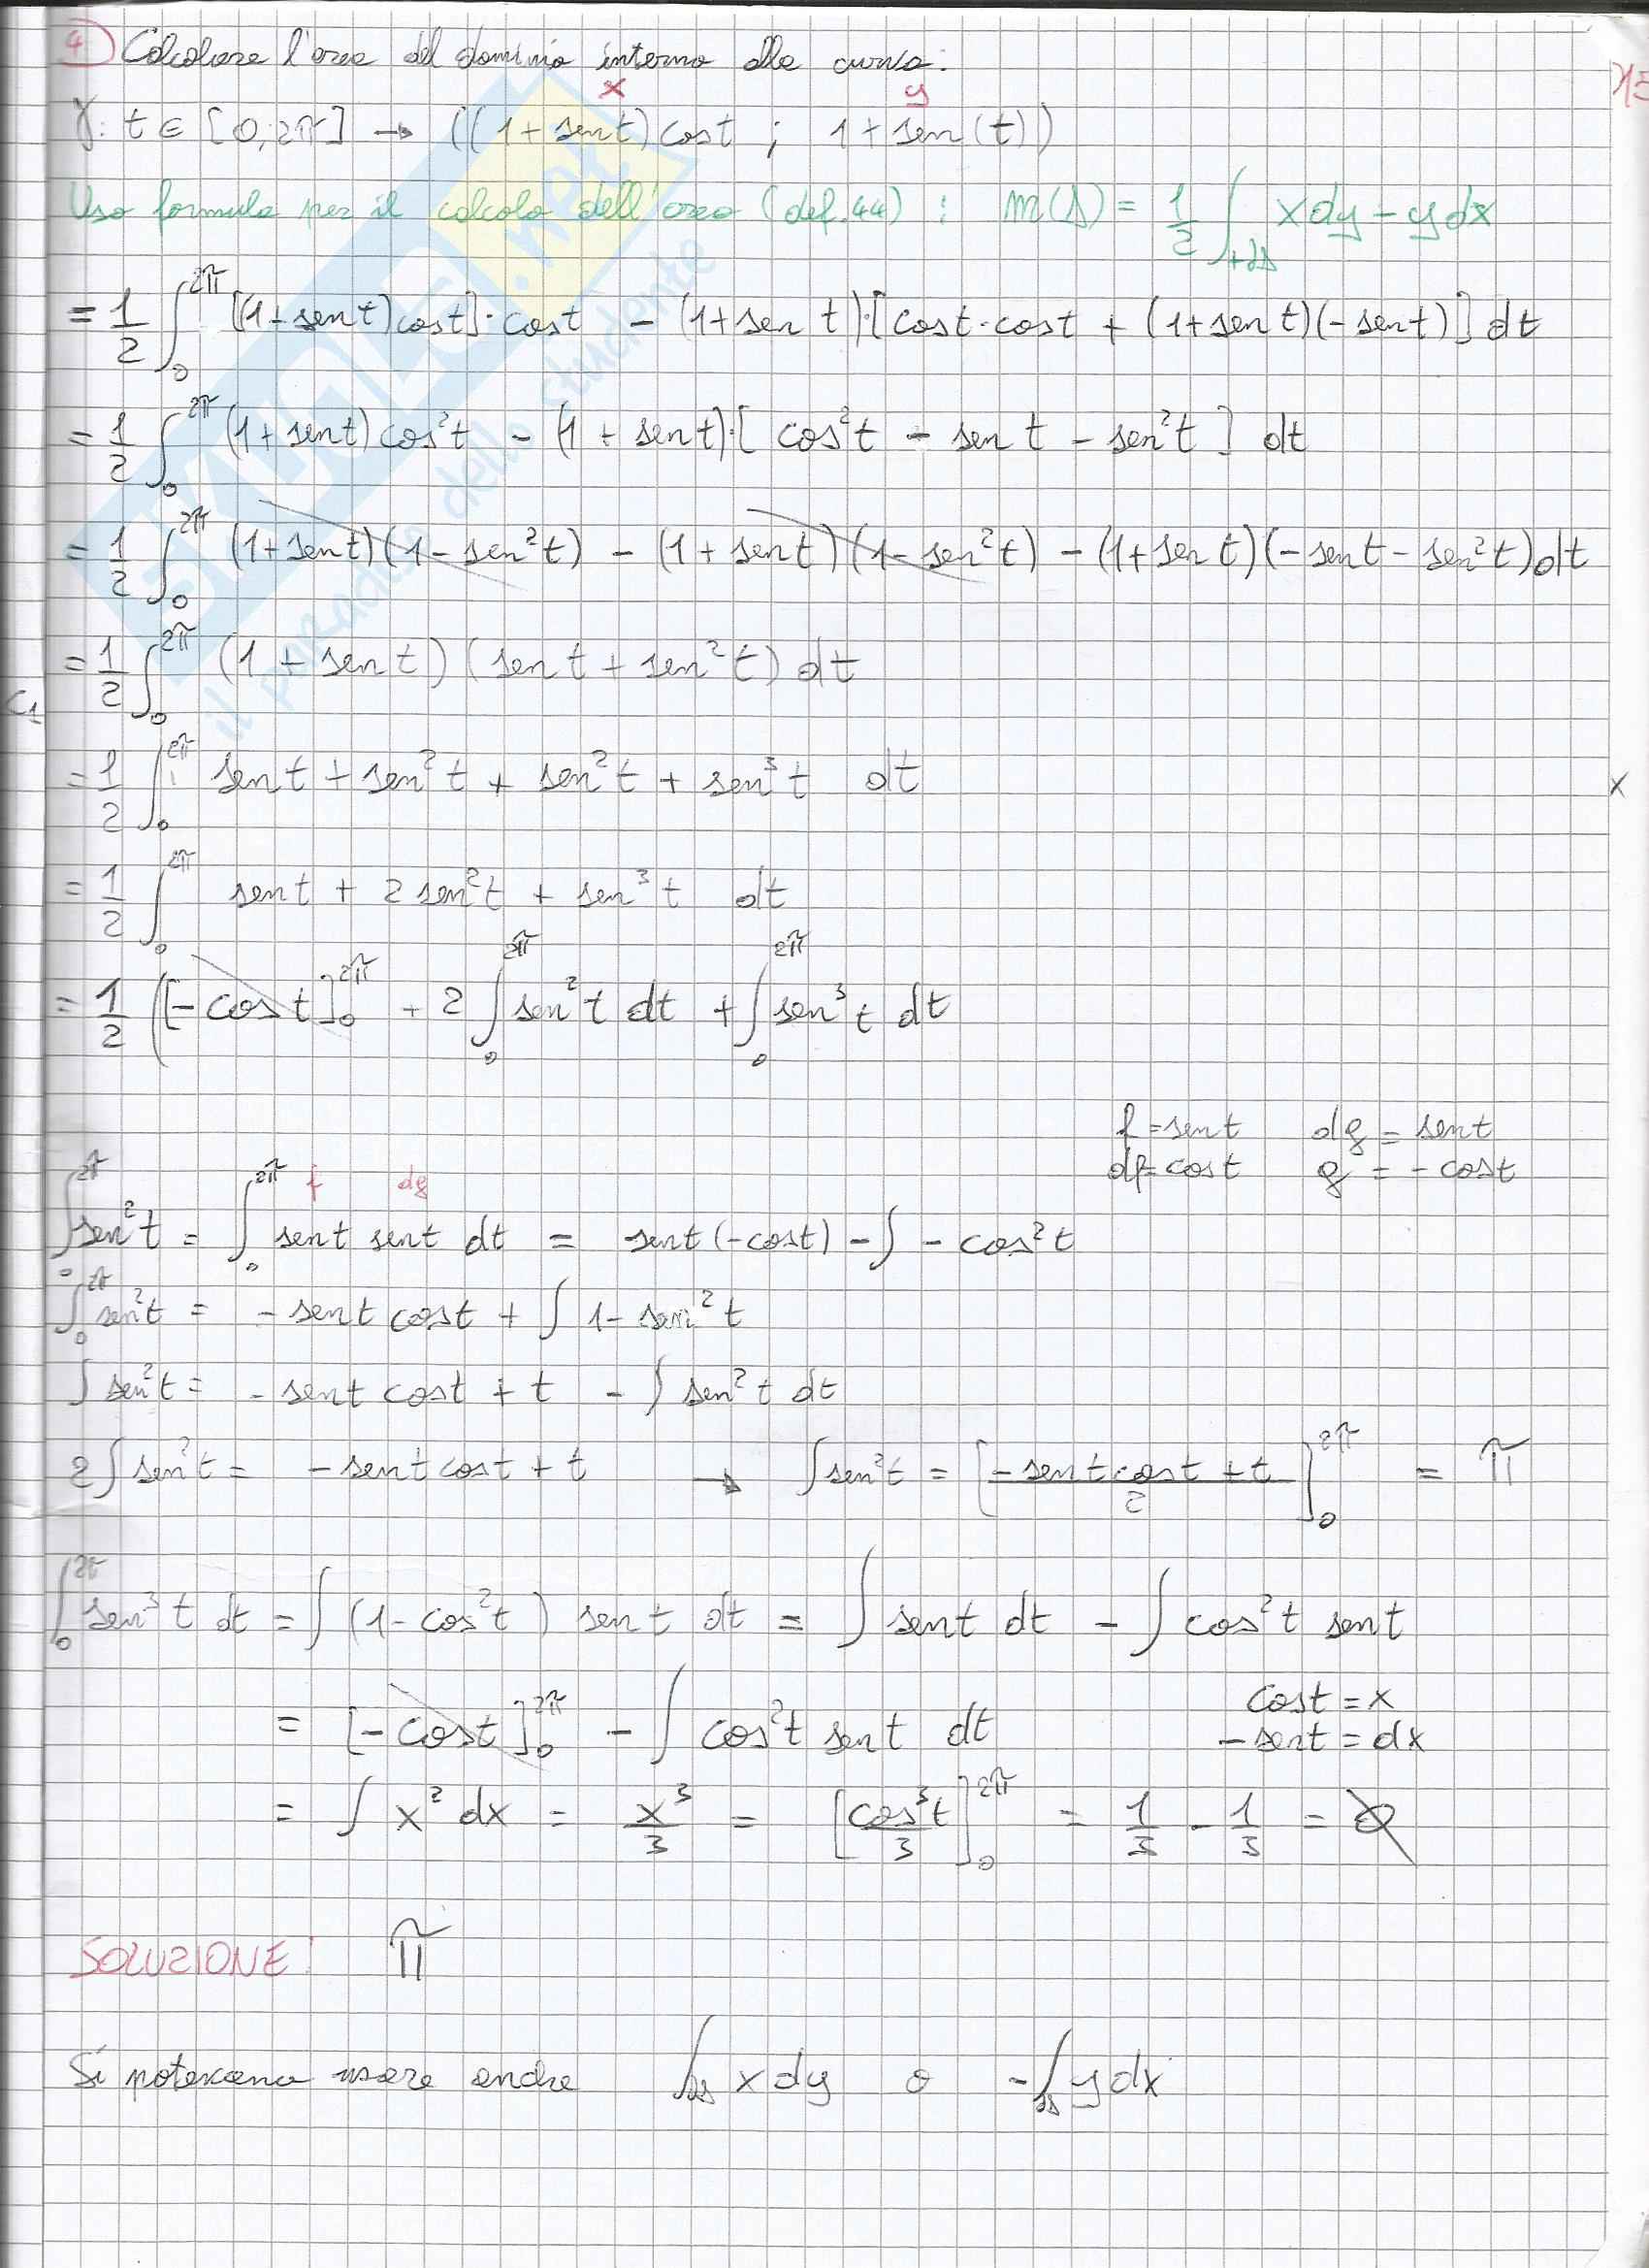 4) Calcolare l'area del dominio interno alla curva:
x y
γ: t ∈ [0, 2π] → ((1 + sent) cost ; 1 + sen(t))
Uso formula per il calcolo dell'area (def. 44) : m(Δ) = 1/2 ∫_{+∂Δ} x dy - y dx
= 1/2 ∫_0^{2π} [(1+sent) cost] · cost - (1+sen t) · [cost · cost + (1+sent)(-sent)] dt
= 1/2 ∫_0^{2π} (1+sent) cos²t - (1 + sent) · [cos²t - sen t - sen²t] dt
= 1/2 ∫_0^{2π} (1+sent)(1 - sen²t) - (1 + sent)(1 - sen²t) - (1+sen t)(-sent - sen²t) dt
= 1/2 ∫_0^{2π} (1 + sen t)(sen t + sen²t) dt
C1
= 1/2 ∫_0^{2π} sen t + sen²t + sen²t + sen³t dt
x
= 1/2 ∫_0^{2π} sent + 2 sen²t + sen³t dt
= 1/2 ([-cost]_0^{2π} + 2 ∫_0^{2π} sen²t dt + ∫_0^{2π} sen³t dt
f = sent dg = sent
df = cost g = - cost
f dg
∫_0^{2π} sen²t = ∫_0^{2π} sent sent dt = sent (-cost) - ∫ - cos²t
∫_0^{2π} sen²t = - sent cost + ∫ 1 - sen²t
∫ sen²t = - sent cost + t - ∫ sen²t dt
2 ∫ sen²t = - sent cost + t → ∫ sen²t = [(-sent cost + t)/2]_0^{2π} = π
∫_0^{2π} sen³t dt = ∫ (1 - cos²t) sent dt = ∫ sent dt - ∫ cos²t sent
= [-cost]_0^{2π} - ∫ cos²t sent dt
cost = x
- sent = dx
= ∫ x² dx = x³/3 = [cos³t/3]_0^{2π} = 1/3 - 1/3 = 0
SOLUZIONE: π
Si potevano usare anche ∫_{∂Δ} x dy o -∫_{∂Δ} y dx
SKUOLA.net
il paradiso dello studente